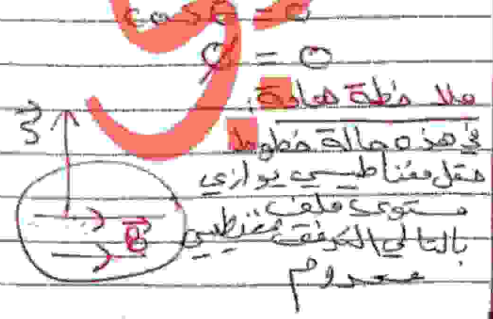 cos θ = 0
Φ = 0
ملاحظة هامة:
في هذه حالة خطوط
حقل مغناطيسي يوازي
مستوى ملف
بالتالي التدفق مغنطيسي
معدوم
B